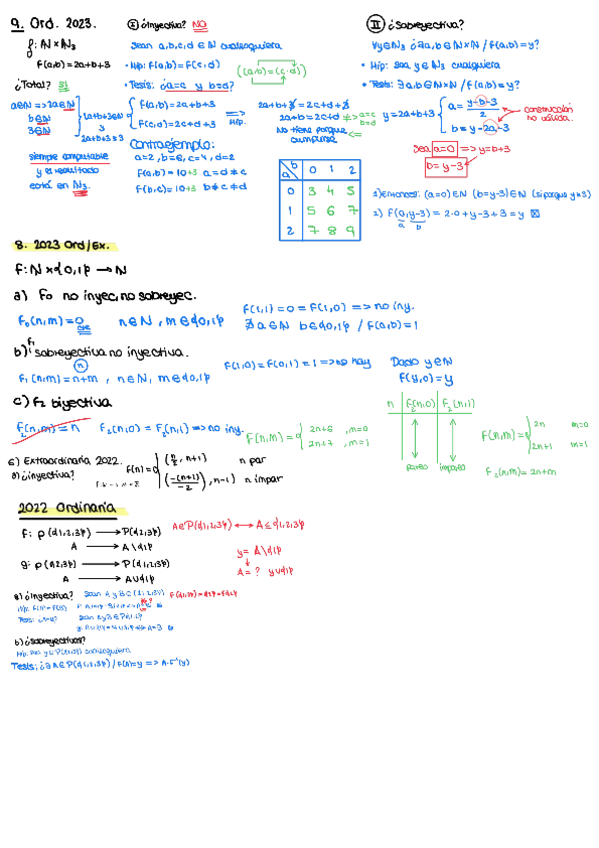 9. Ord. 2023.
f: N×N₃
F(a,b) = 2a+b+3
¿Total? Sí
a∈N => 2a∈N
b∈N
3∈N
2a+b+3∈N
2a+b+3≥3
siempre computable
y el resultado
está en N₃.
I ¿Inyectiva? NO
Sean a,b,c,d ∈ N cualesquiera
• Hip: F(a,b) = F(c,d)
((a,b)=(c,d))
• Tesis: ¿a=c y b=d?
F(a,b) = 2a+b+3
F(c,d) = 2c+d+3
=> Hip.
2a+b+3 = 2c+d+3
2a+b = 2c+d ≠> a=c b=d
No tiene porque cumplirse <=
Contraejemplo:
a=2, b=6, c=4, d=2
F(a,b) = 10+3 a≠c
F(b,c) = 10+3 b≠c+d
a b 0 1 2
0 3 4 5
1 5 6 7
2 7 8 9
II ¿Sobreyectiva?
∀y∈N₃ ¿∃a,b∈N×N / F(a,b)=y?
• Hip: Sea y∈N₃ cualquiera
• Tesis: ∃a,b∈N×N / F(a,b)=y?
y=2a+b+3
a = y-b-3 / 2
b = y-2a-3
construcción no válida.
Sea a=0 => y=b+3
b=y-3
1) Entonces: (a=0)∈N (b=y-3)∈N (si porque y≥3)
2) F(0,y-3) = 2·0+y-3+3 = y ⊠
a b
8. 2023 Ord/Ex.
F: N×{0,1} → N
a) F₀ no inyec, no sobreyec.
F₀(n,m)=0 n∈N, m∈{0,1}
F(1,1)=0=F(1,0) => no iny.
∄a∈N b∈{0,1} / F(a,b)=1
b) F₁ sobreyectiva no inyectiva.
F₁(n,m)=n+m, n∈N, m∈{0,1}
F(1,0)=F(0,1)=1 => no hay
Dado y∈N
F(y,0)=y
c) F₂ biyectiva
F₂(n,m)=n F₂(n,0) = F₂(n,1) => no iny.
F(n,m)= { 2n+6, m=0
2n+7, m=1
n F₂(n,0) F₂(n,1)
pares impares
F(n,m)= { 2n m=0
2n+1 m=1
F₂(n,m)=2n+m
6) Extraordinaria 2022.
a) ¿inyectiva?
F(n)= { (n/2, n+1) n par
(-(n+1)/-2, n-1) n impar
2022 Ordinaria
F: P({1,2,3}) → P({2,3})
A → A\{1}
g: P({2,3}) → P({1,2,3})
A → A∪{1}
A∈P({1,2,3}) ↔ A⊆{1,2,3}
y = A\{1}
A = ? y∪{1}
a) ¿Inyectiva?
F({1,2})={2}=F({2})
b) ¿sobreyectivas?
Tesis: ¿∃A∈P({1,2,3}) / F(A)=y => A=F⁻¹(y)